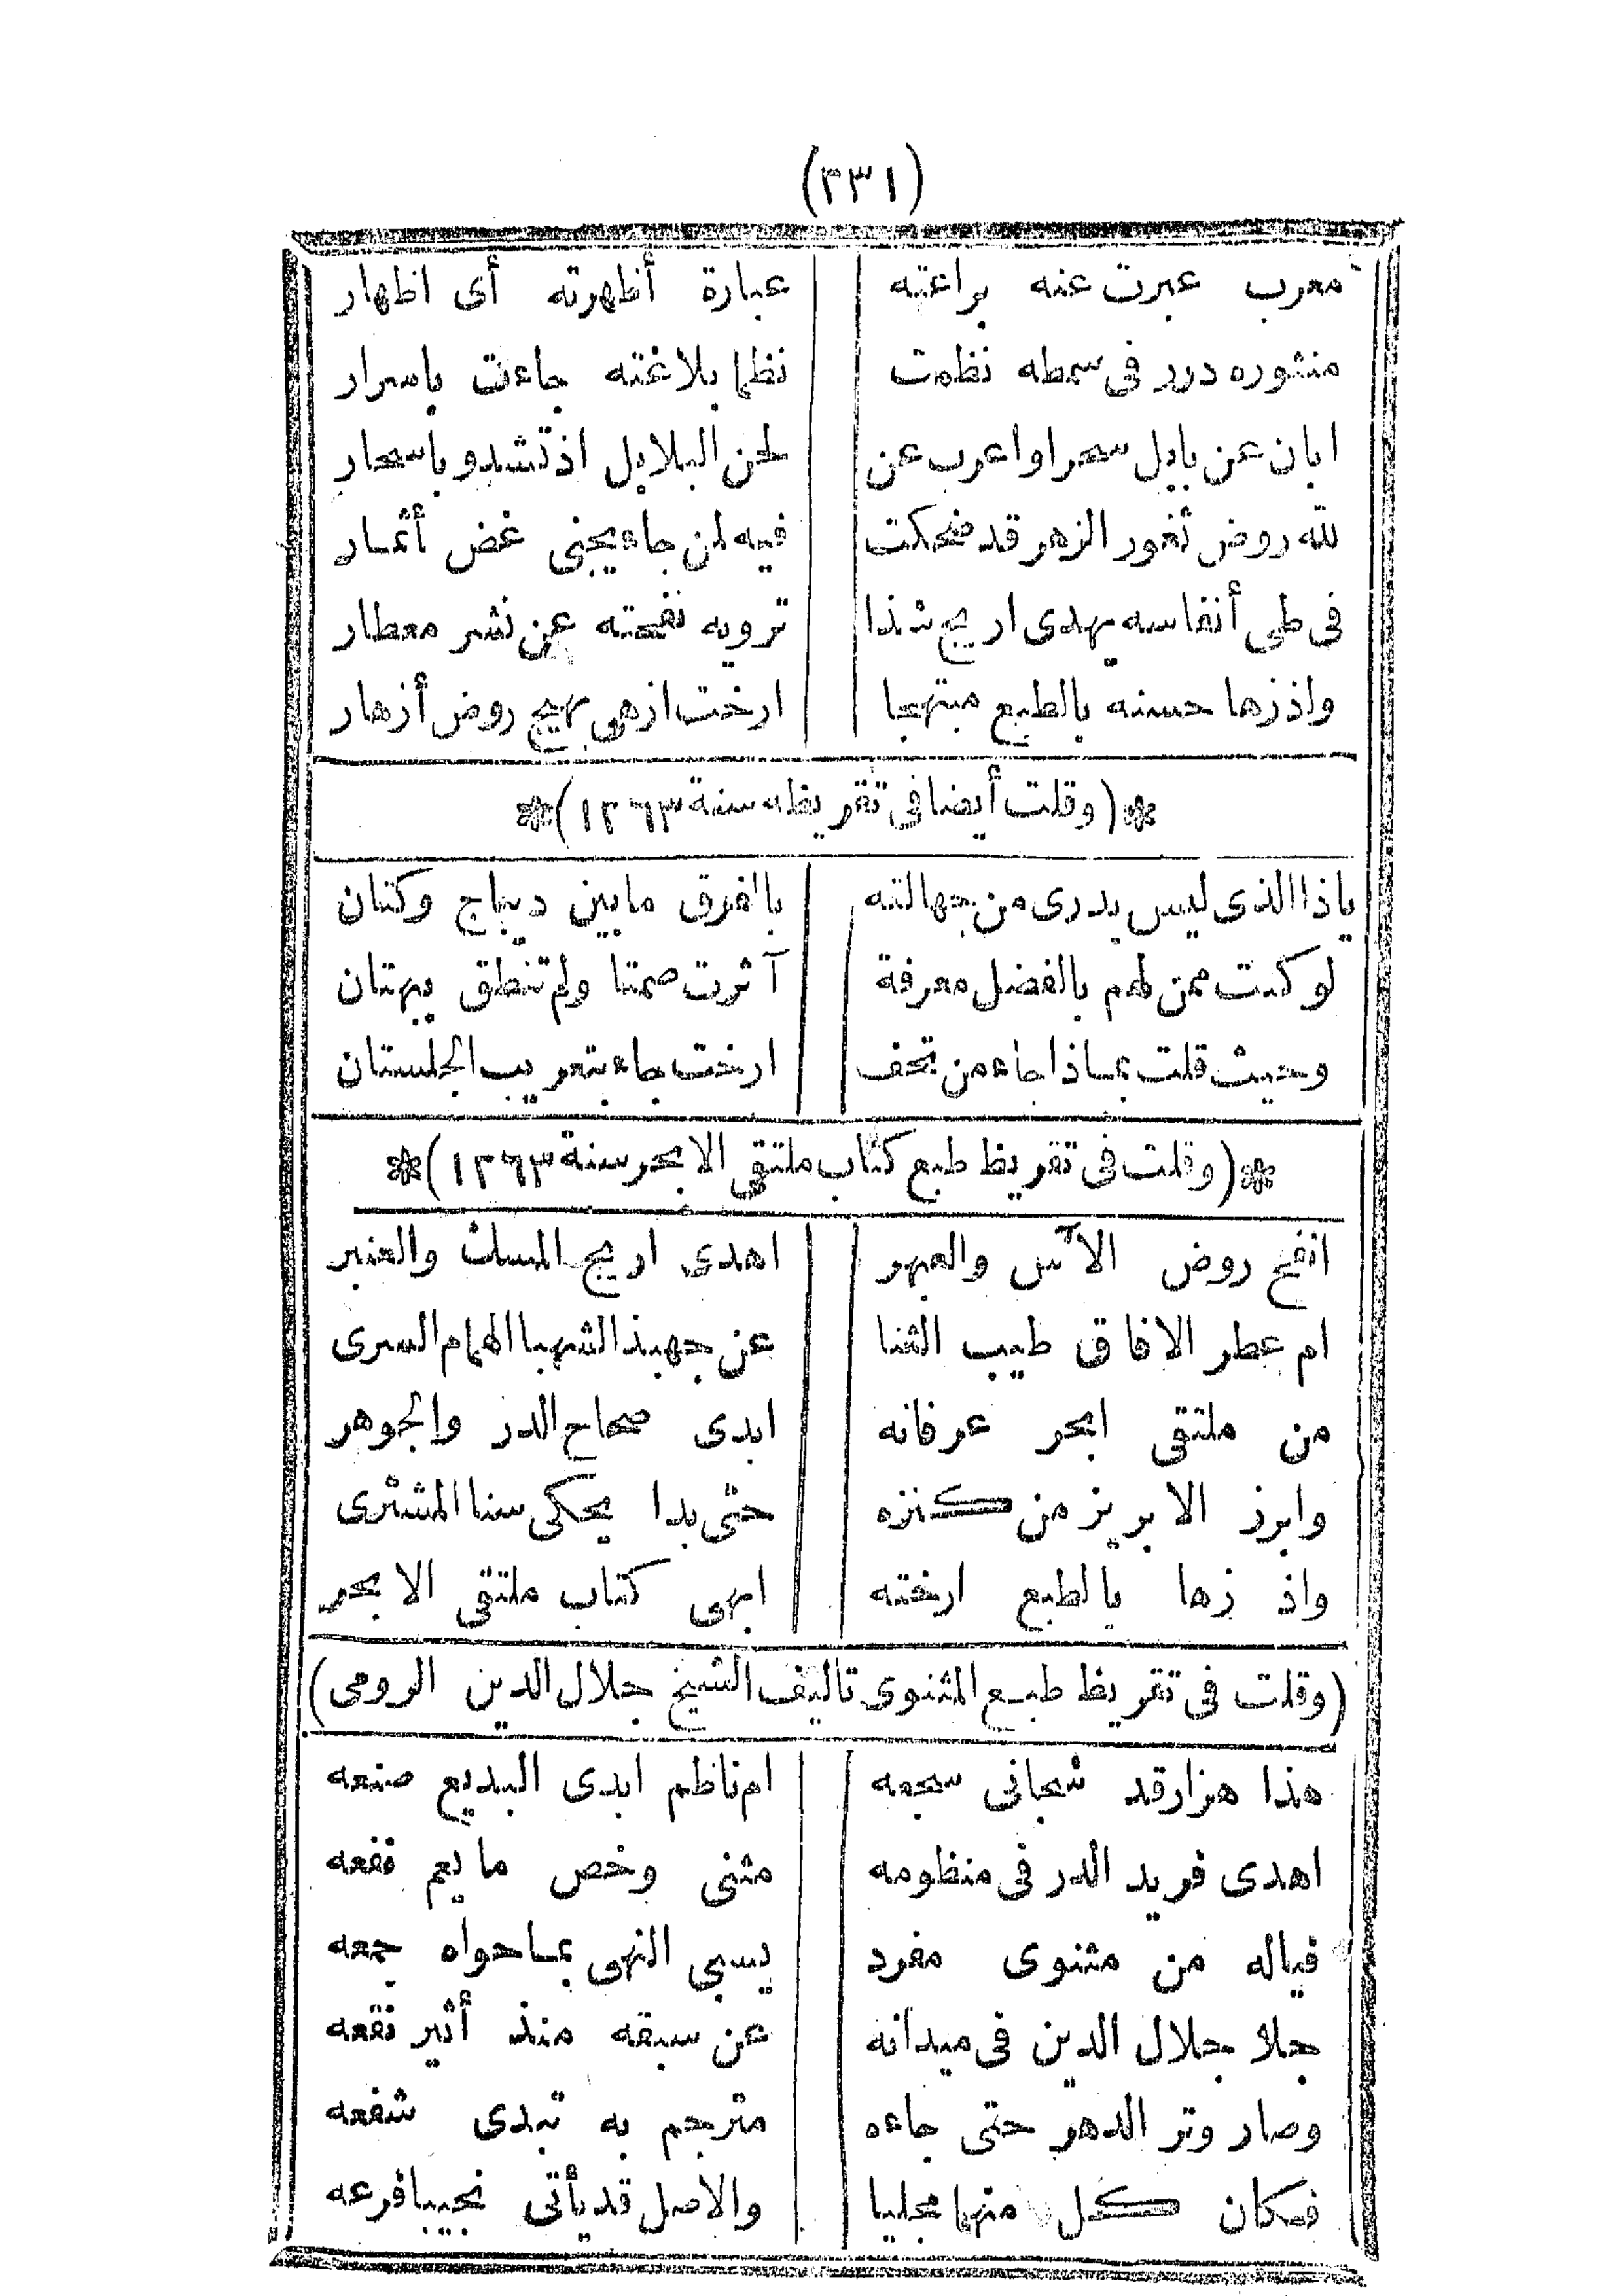 (٢٣١)
معرب عبرت عنه براعته عبارة أظهرته أى اظهار
منثوره درر فى سمطه نظمت نظما بلاغته جاءت باسرار
ابان عن بابل سحرا واعرب عن لحن البلابل اذ تشدو باسحار
لله روض ثغور الزهر قد ضحكت فيه لمن جاء يجنى غض أثمار
فى طى أنفاسه يهدى اريج شذا ترويه نفحته عن نشر معطار
واذ زها حسنه بالطبع مبتهجا ارخت ازهى بهيج روض أزهار
❊(وقلت أيضا فى تقريظه سنة ١٢٦٣)❊
ياذا الذى ليس يدرى من جهالته بالفرق مابين ديباج وكتان
لو كنت ممن لهم بالفضل معرفة آثرت صمتا ولم تنطق ببهتان
وحيث قلت بماذا جاء من تحف ارخت جاء بتعريب الجلستان
❊(وقلت فى تقريظ طبع كتاب ملتقى الابحر سنة ١٢٦٣)❊
انفح روض الآس والعبهر اهدى اريج المسك والعنبر
ام عطر الافاق طيب الثنا عن جهبذ الشهبا الهمام السرى
من ملتقى ابحر عرفانه ابدى صحاح الدر والجوهر
وابرز الابريز من كنزه حتى بدا يحكى سنا المشترى
واذ زها بالطبع ارخته ابهى كتاب ملتقى الابحر
(وقلت فى تقريظ طبع المثنوى تاليف الشيخ جلال الدين الرومى)
هذا هزار قد شجانى سجعه ام ناظم ابدى البديع صنعه
اهدى فريد الدر فى منظومه مثنى وخص ما يعم نفعه
فياله من مثنوى مفرد يسبى النهى بما حواه جمعه
جلا جلال الدين فى ميدانه عن سبقه منذ أثير نقعه
وصار وتر الدهر حتى جاءه مترجم به تبدى شفعه
فكان كل منهما مجليا والاصل قد يأتى نجيبا فرعه